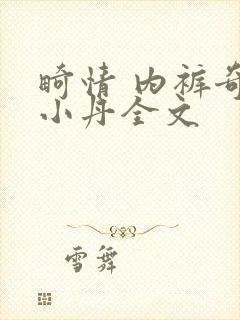 畸情 内裤奇
小丹全文
雪舞